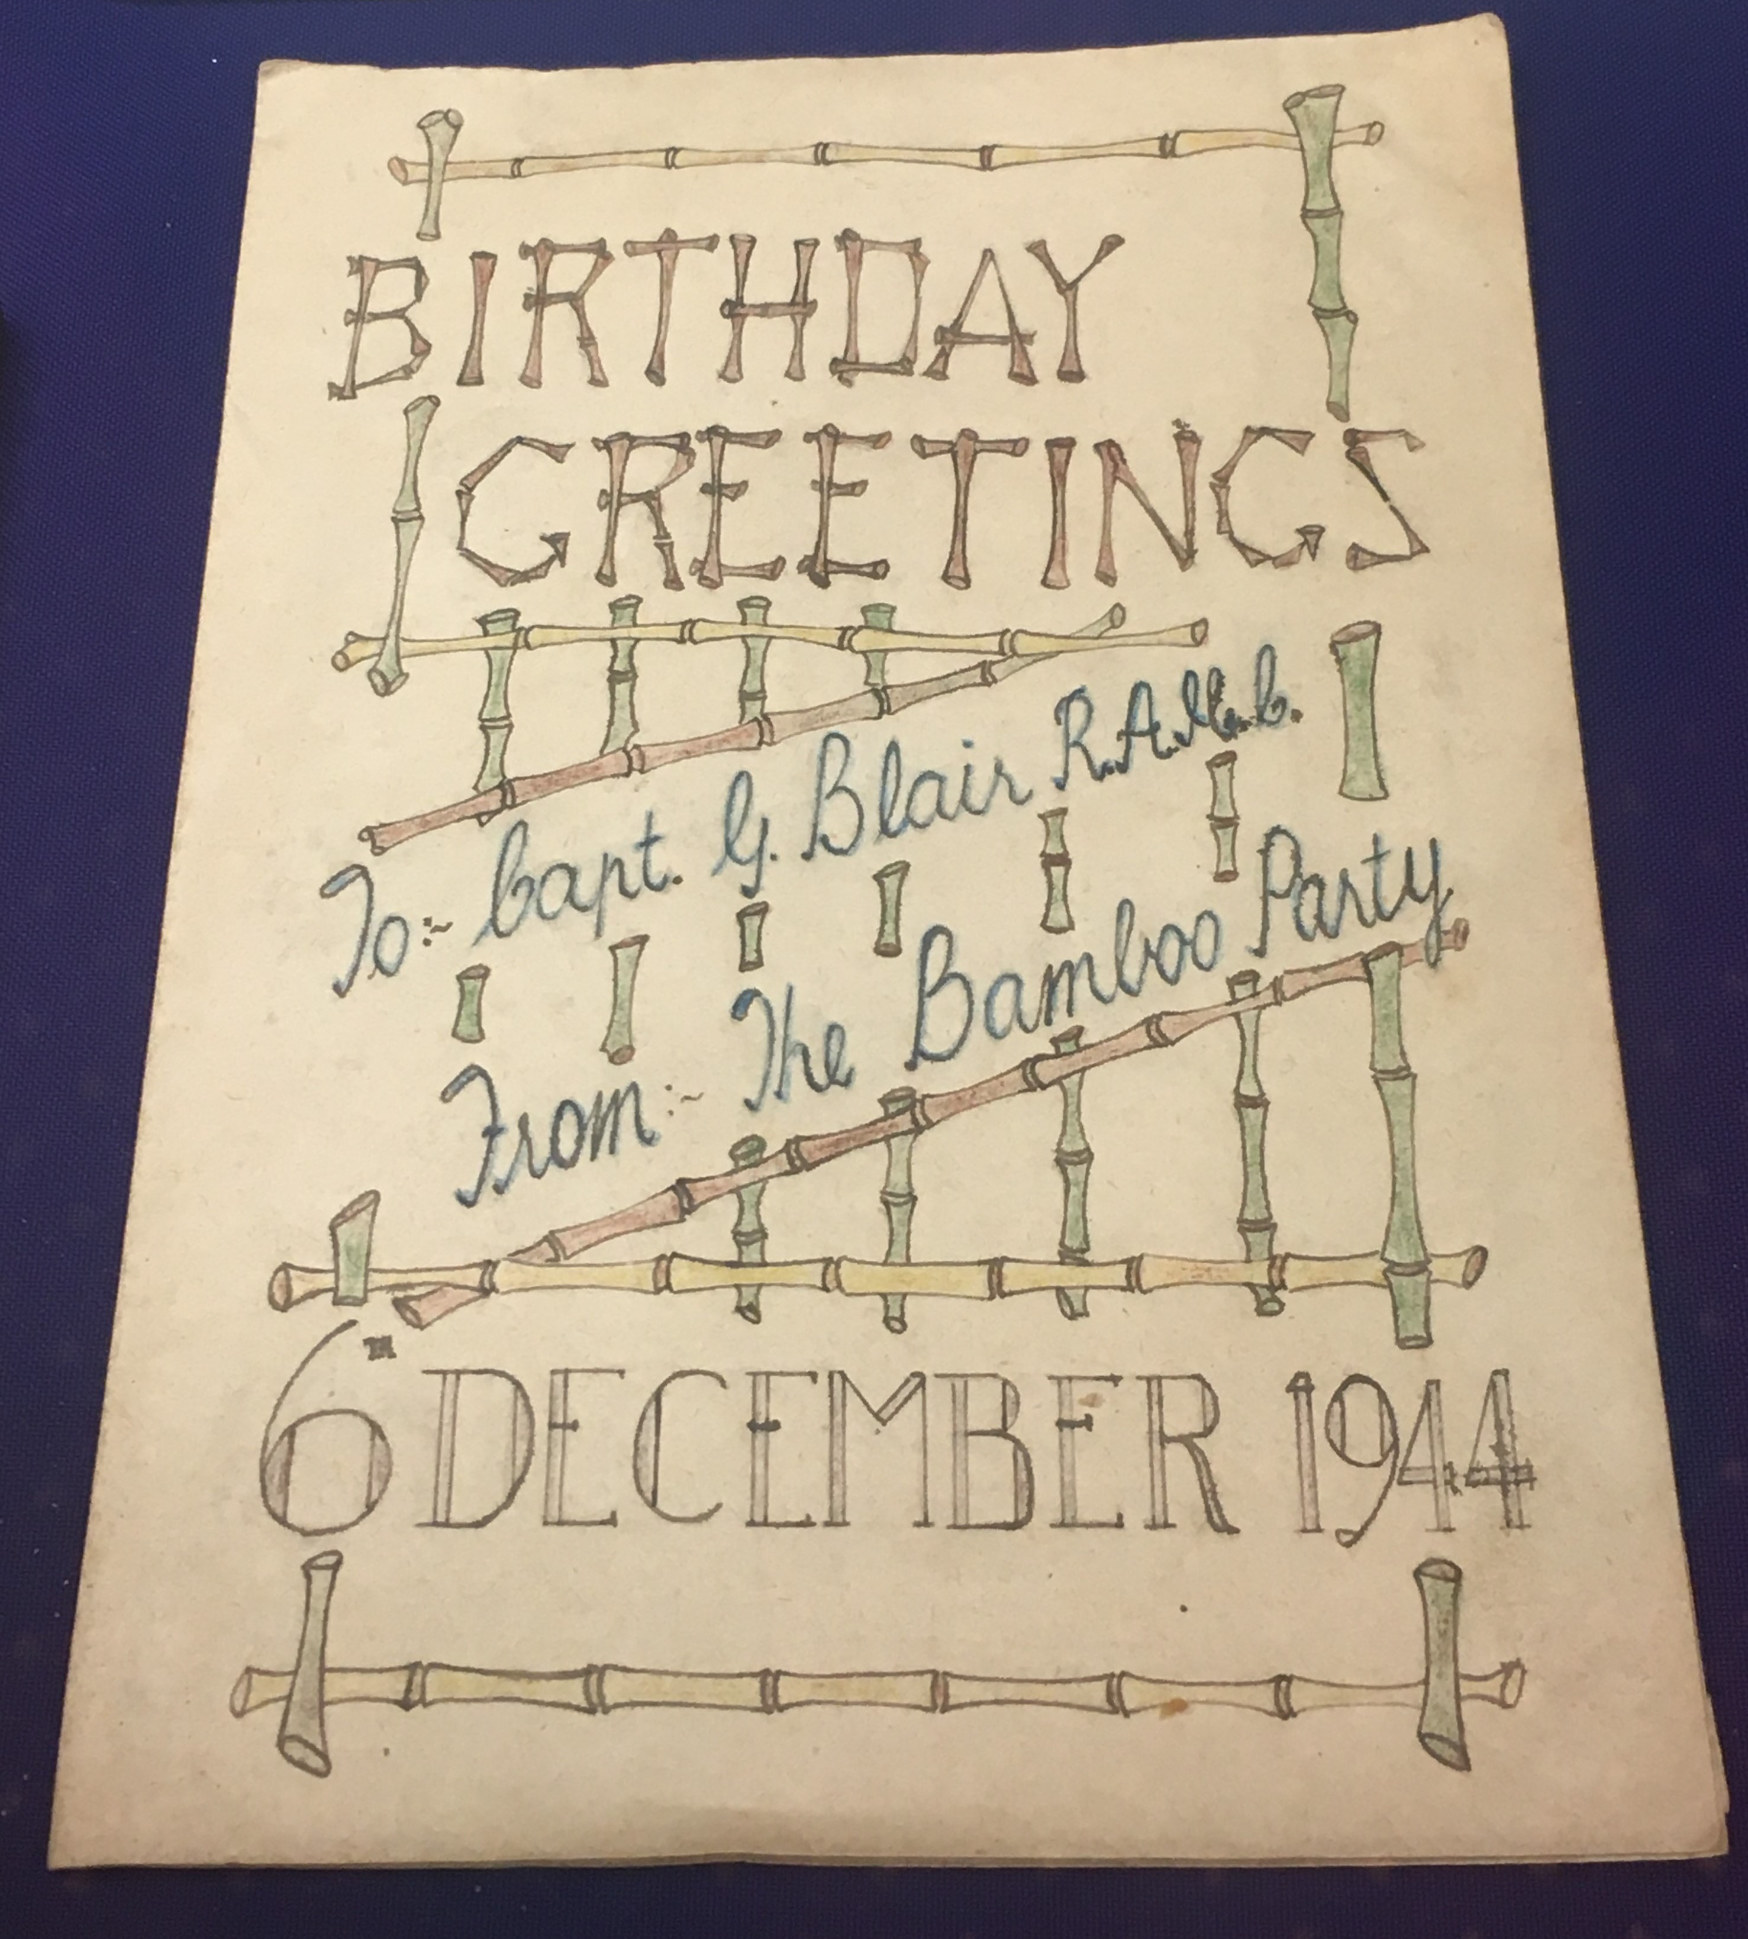 BIRTHDAY
GREETINGS
To:- Capt. G. Blair R.A.M.C.
From:- The Bamboo Party
6TH DECEMBER 1944